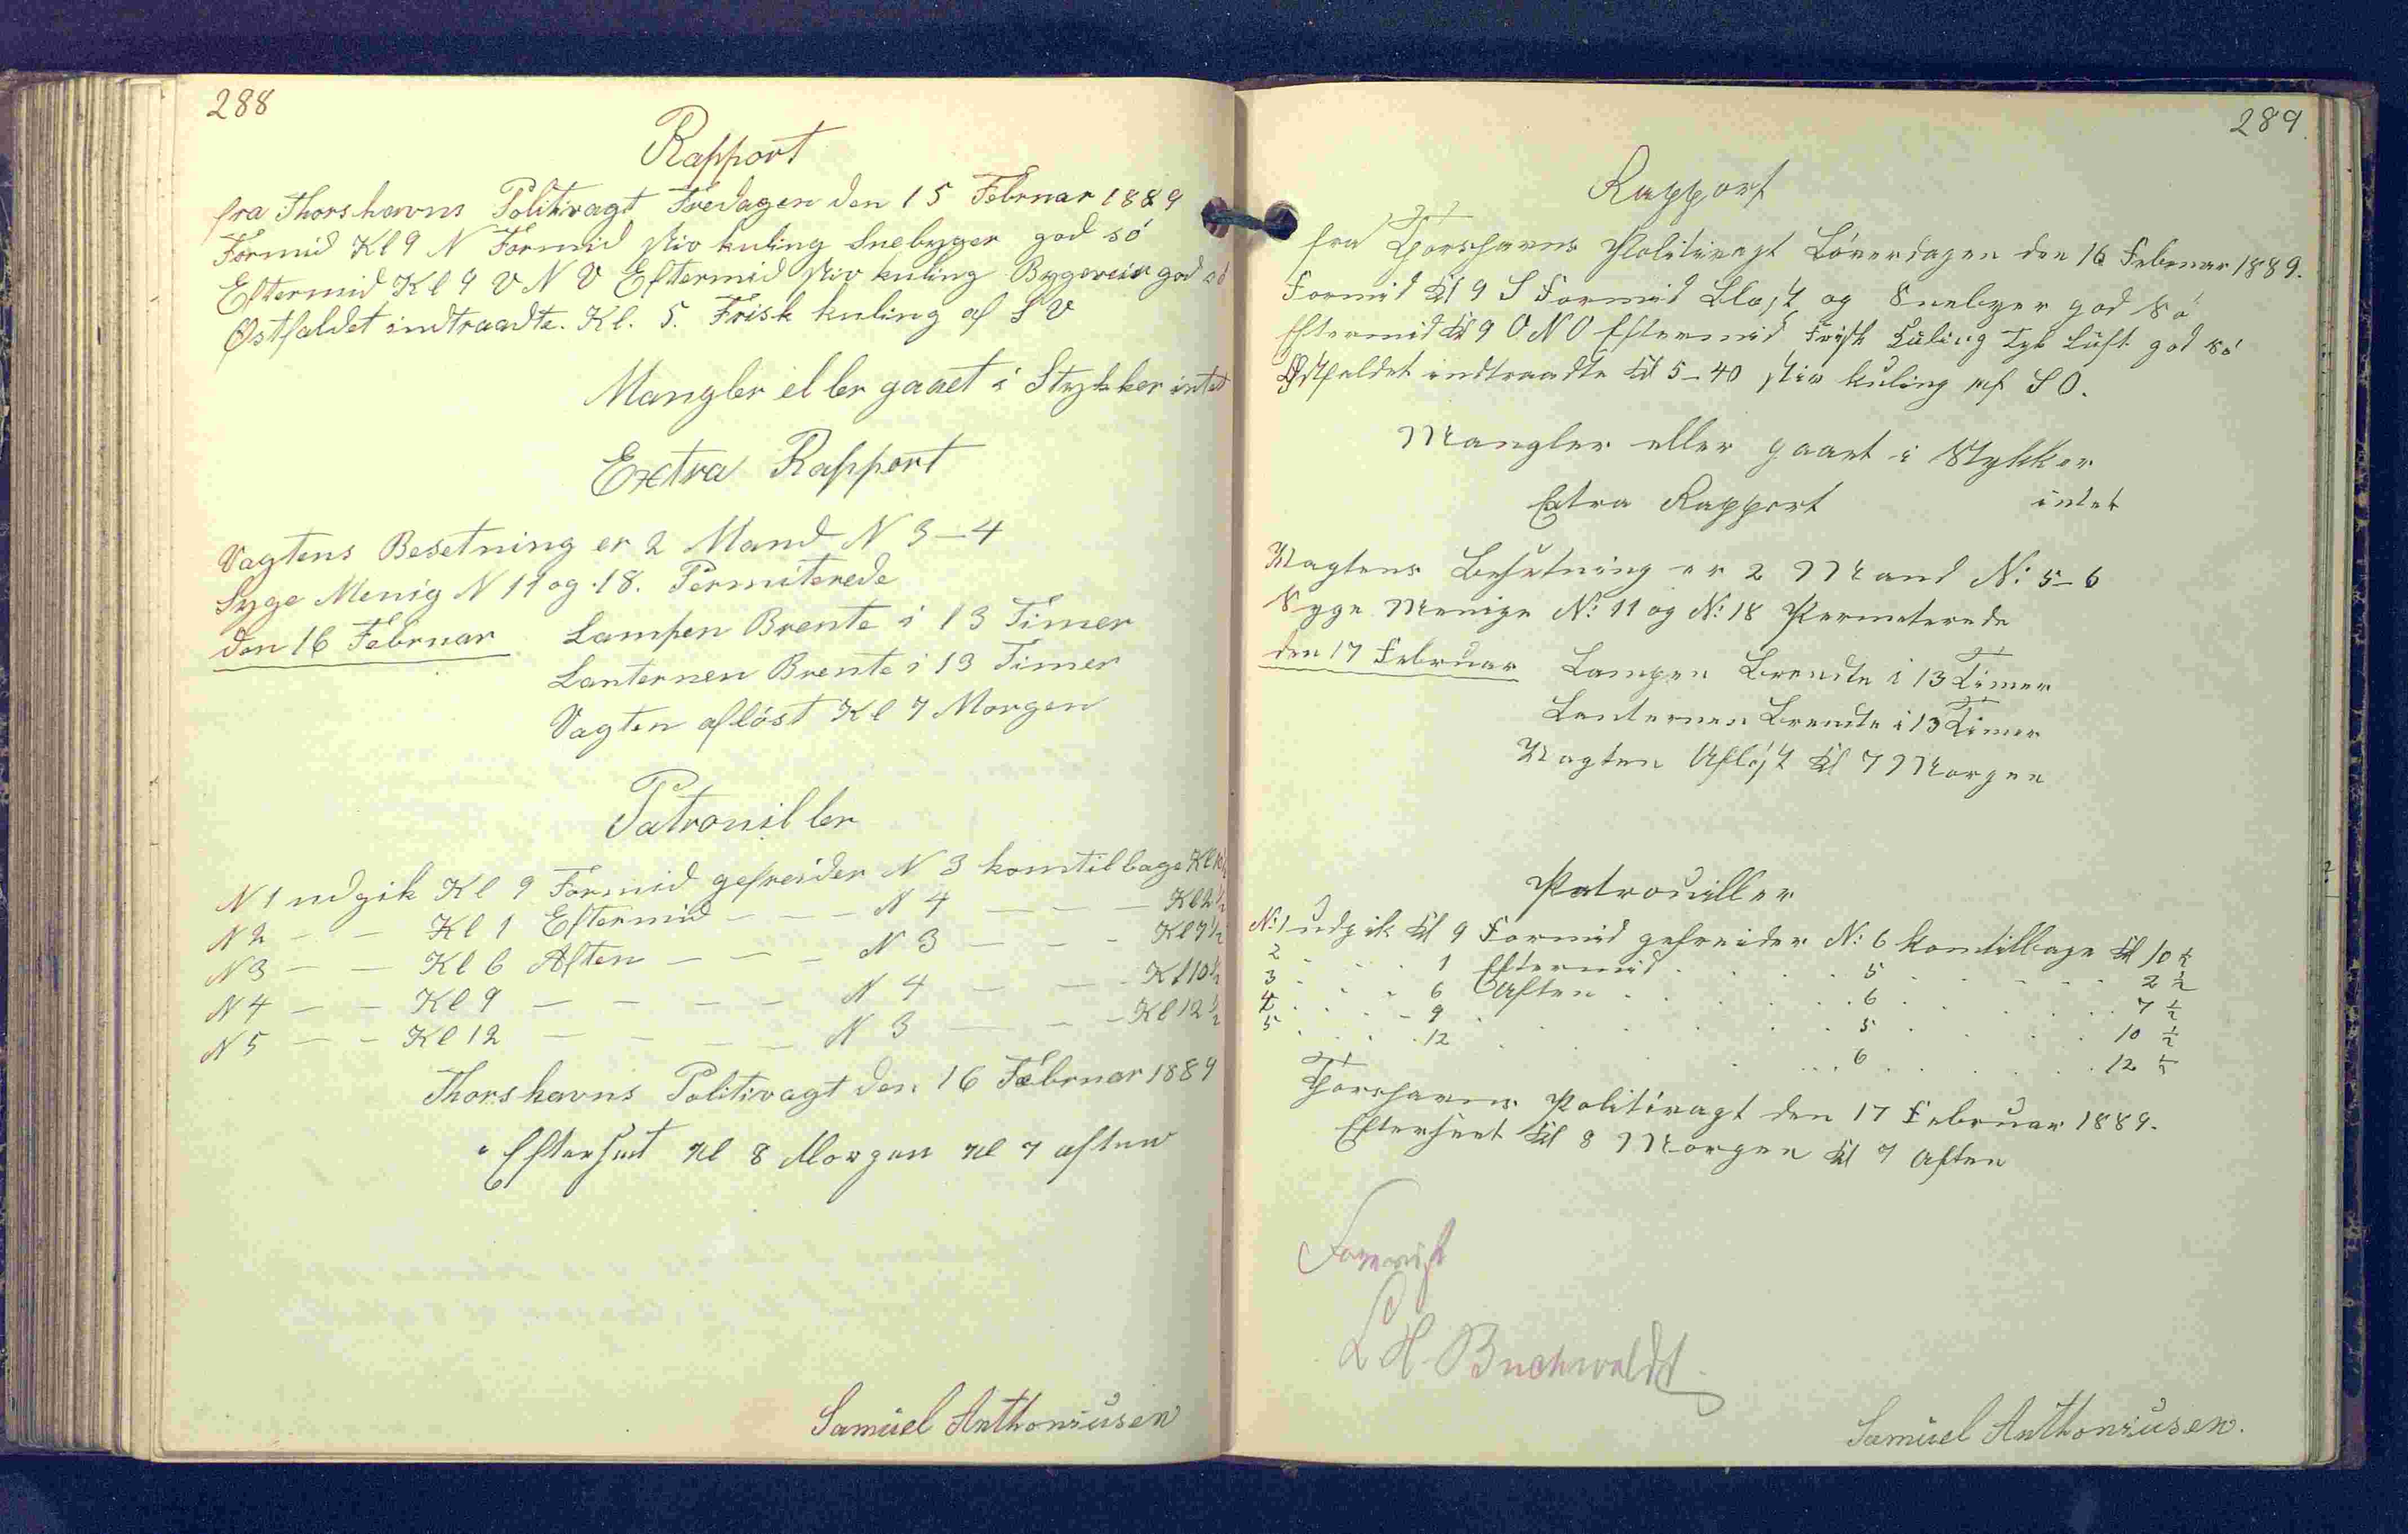 288
Rapport
fra Thorshavns Politivagt Fredagen den 15 Februar 1889
Formid Kl 9 N Formid stiv kuling Snebyger god só
Eftermid Kl 9 V N V Eftermid stiv kuling Bygeveir god só
Østfaldet indtraadte. Kl. 5. Frisk kuling af S V
Mangler eller gaaet i Stykker intet
Extra Rapport
Vagtens Besetning er 2 Mand N 3-4
Syge Menig N 11 og 18. Permiterede
den 16 Februar Lampen Brente i 13 Timer
Lanternen Brente i 13 Timer
Vagten aflöst Kl 7 Morgen
Patrouiller
N 1 udgik Kl 9 Formid gefreider N 3 komtilbage Kl 10½
N 2 — — Kl 1 Eftermid — — — N 4 — — — Kl 2½
N 3 — — Kl 6 Aften — — — N 3 — — — Kl 7½
N 4 — — Kl 9 — — — — N 4 — — — Kl 10½
N 5 — — Kl 12 — — — — N 3 — — — Kl 12½
Thorshavns Politivagt den 16 Februar 1889
Efterseet Kl 8 Morgen Kl 7 aften
Samüel Anthoniüsen
289.
Rapport
fra Thorshavns Politivagt Löverdagen den 16 Februar 1889.
Formid Kl 9 S Formid Blæst og Snebyer god Só
Eftermid Kl 9 O N O Eftermid Frisk Kuling Tyk Luft god só
Østfaldet indtraadte Kl 5-40 stiv kuling af S O.
Mangler eller gaaet i Stykker
intet
Extra Rapport
Vagtens Besetning er 2 Mand N: 5-6
Syge Menige N: 11 og N: 18 Permeterede
den 17 Februar Lampen Brendte i 13 Timer
Lanternen Brendte i 13 Timer
Vagten Aflöst Kl 7 Morgen
Patrouiller
N: 1 udgik Kl 9 Formid gefreider N: 6 komtilbage Kl 10 ½
2 . . . 1 Eftermid . . . . 5 . . . . 2 ½
3 . . . 6 Aften . . . . 6 . . . . 7 ½
4 . . . 9 . . . . 5 . . . . 10 ½
5 . . . 12 . . . . 6 . . . . 12 ½
Thorshavns Politivagt den 17 Februar 1889.
Efterseet Kl 8 Morgen Kl 7 Aften
Forevist
L H Buchwaldt
Samüel Anthoniüsen.